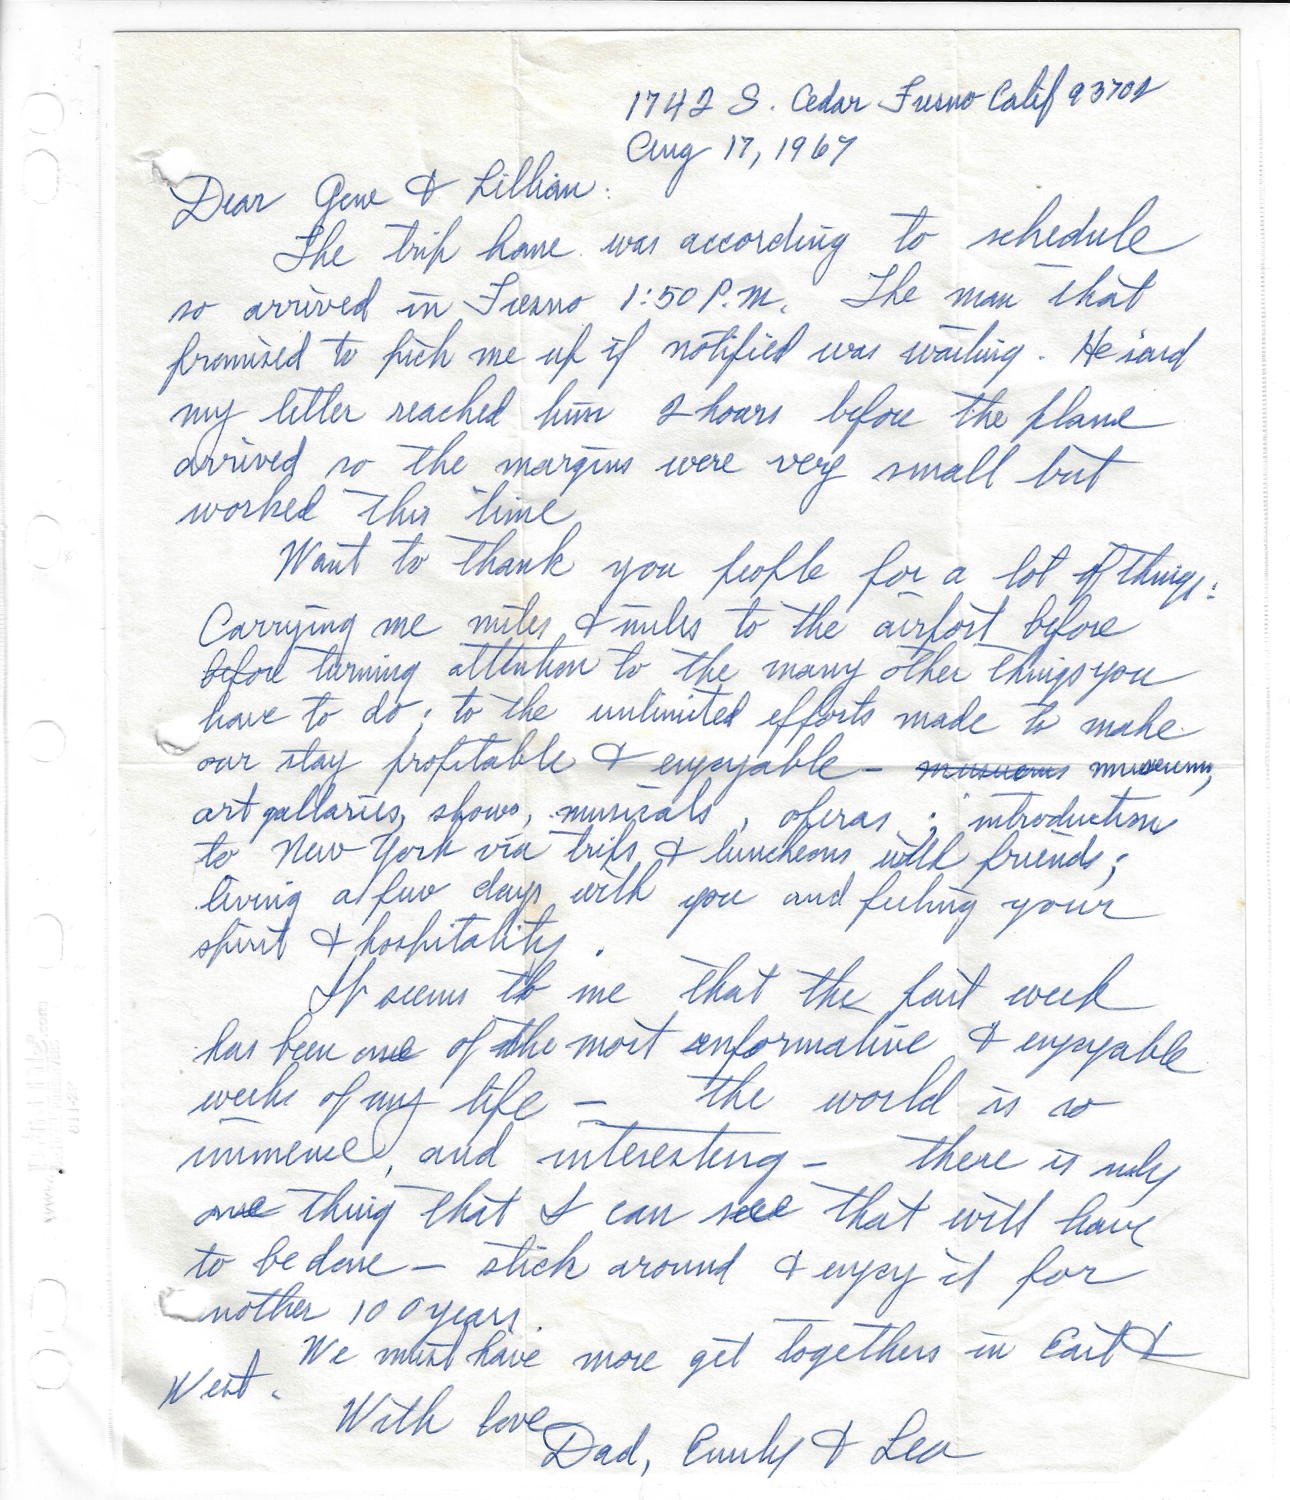 1742 S. Cedar Fresno Calif 93702
Aug 17, 1967
Dear Gene & Lillian:
The trip home was according to schedule
so arrived in Fresno 1:50 P.M. The man that
promised to pick me up if notified was waiting. He said
my letter reached him 2 hours before the plane
arrived so the margins were very small but
worked this time
Want to thank you people for a lot of things:
Carrying me miles & miles to the airport before
before turning attention to the many other things you
have to do; to the unlimited efforts made to make
our stay profitable & enjoyable - museums museums,
art gallaries, shows, musicals, operas; introduction
to New York via trips & luncheons with friends;
living a few days with you and feeling your
spirit & hospitality.
It seems to me that the past week
has been one of the most informative & enjoyable
weeks of my life - the world is so
immense, and interesting - there is only
one thing that I can see that will have
to be done - stick around & enjoy it for
nother 100 years.
We must have more get togethers in East &
West.
With love
Dad, Emily & Leo